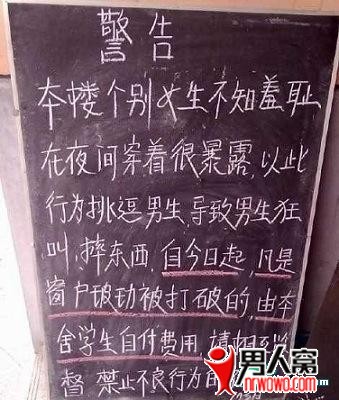 警告
本楼个别女生不知羞耻
在夜间穿着很暴露,以此
行为挑逗男生,导致男生狂
叫,摔东西,自今日起,凡是
窗户玻功被打破的,由本
舍学生自付费用,请相互监
督 禁止不良行为的
男人窝
nrwowo.com
m